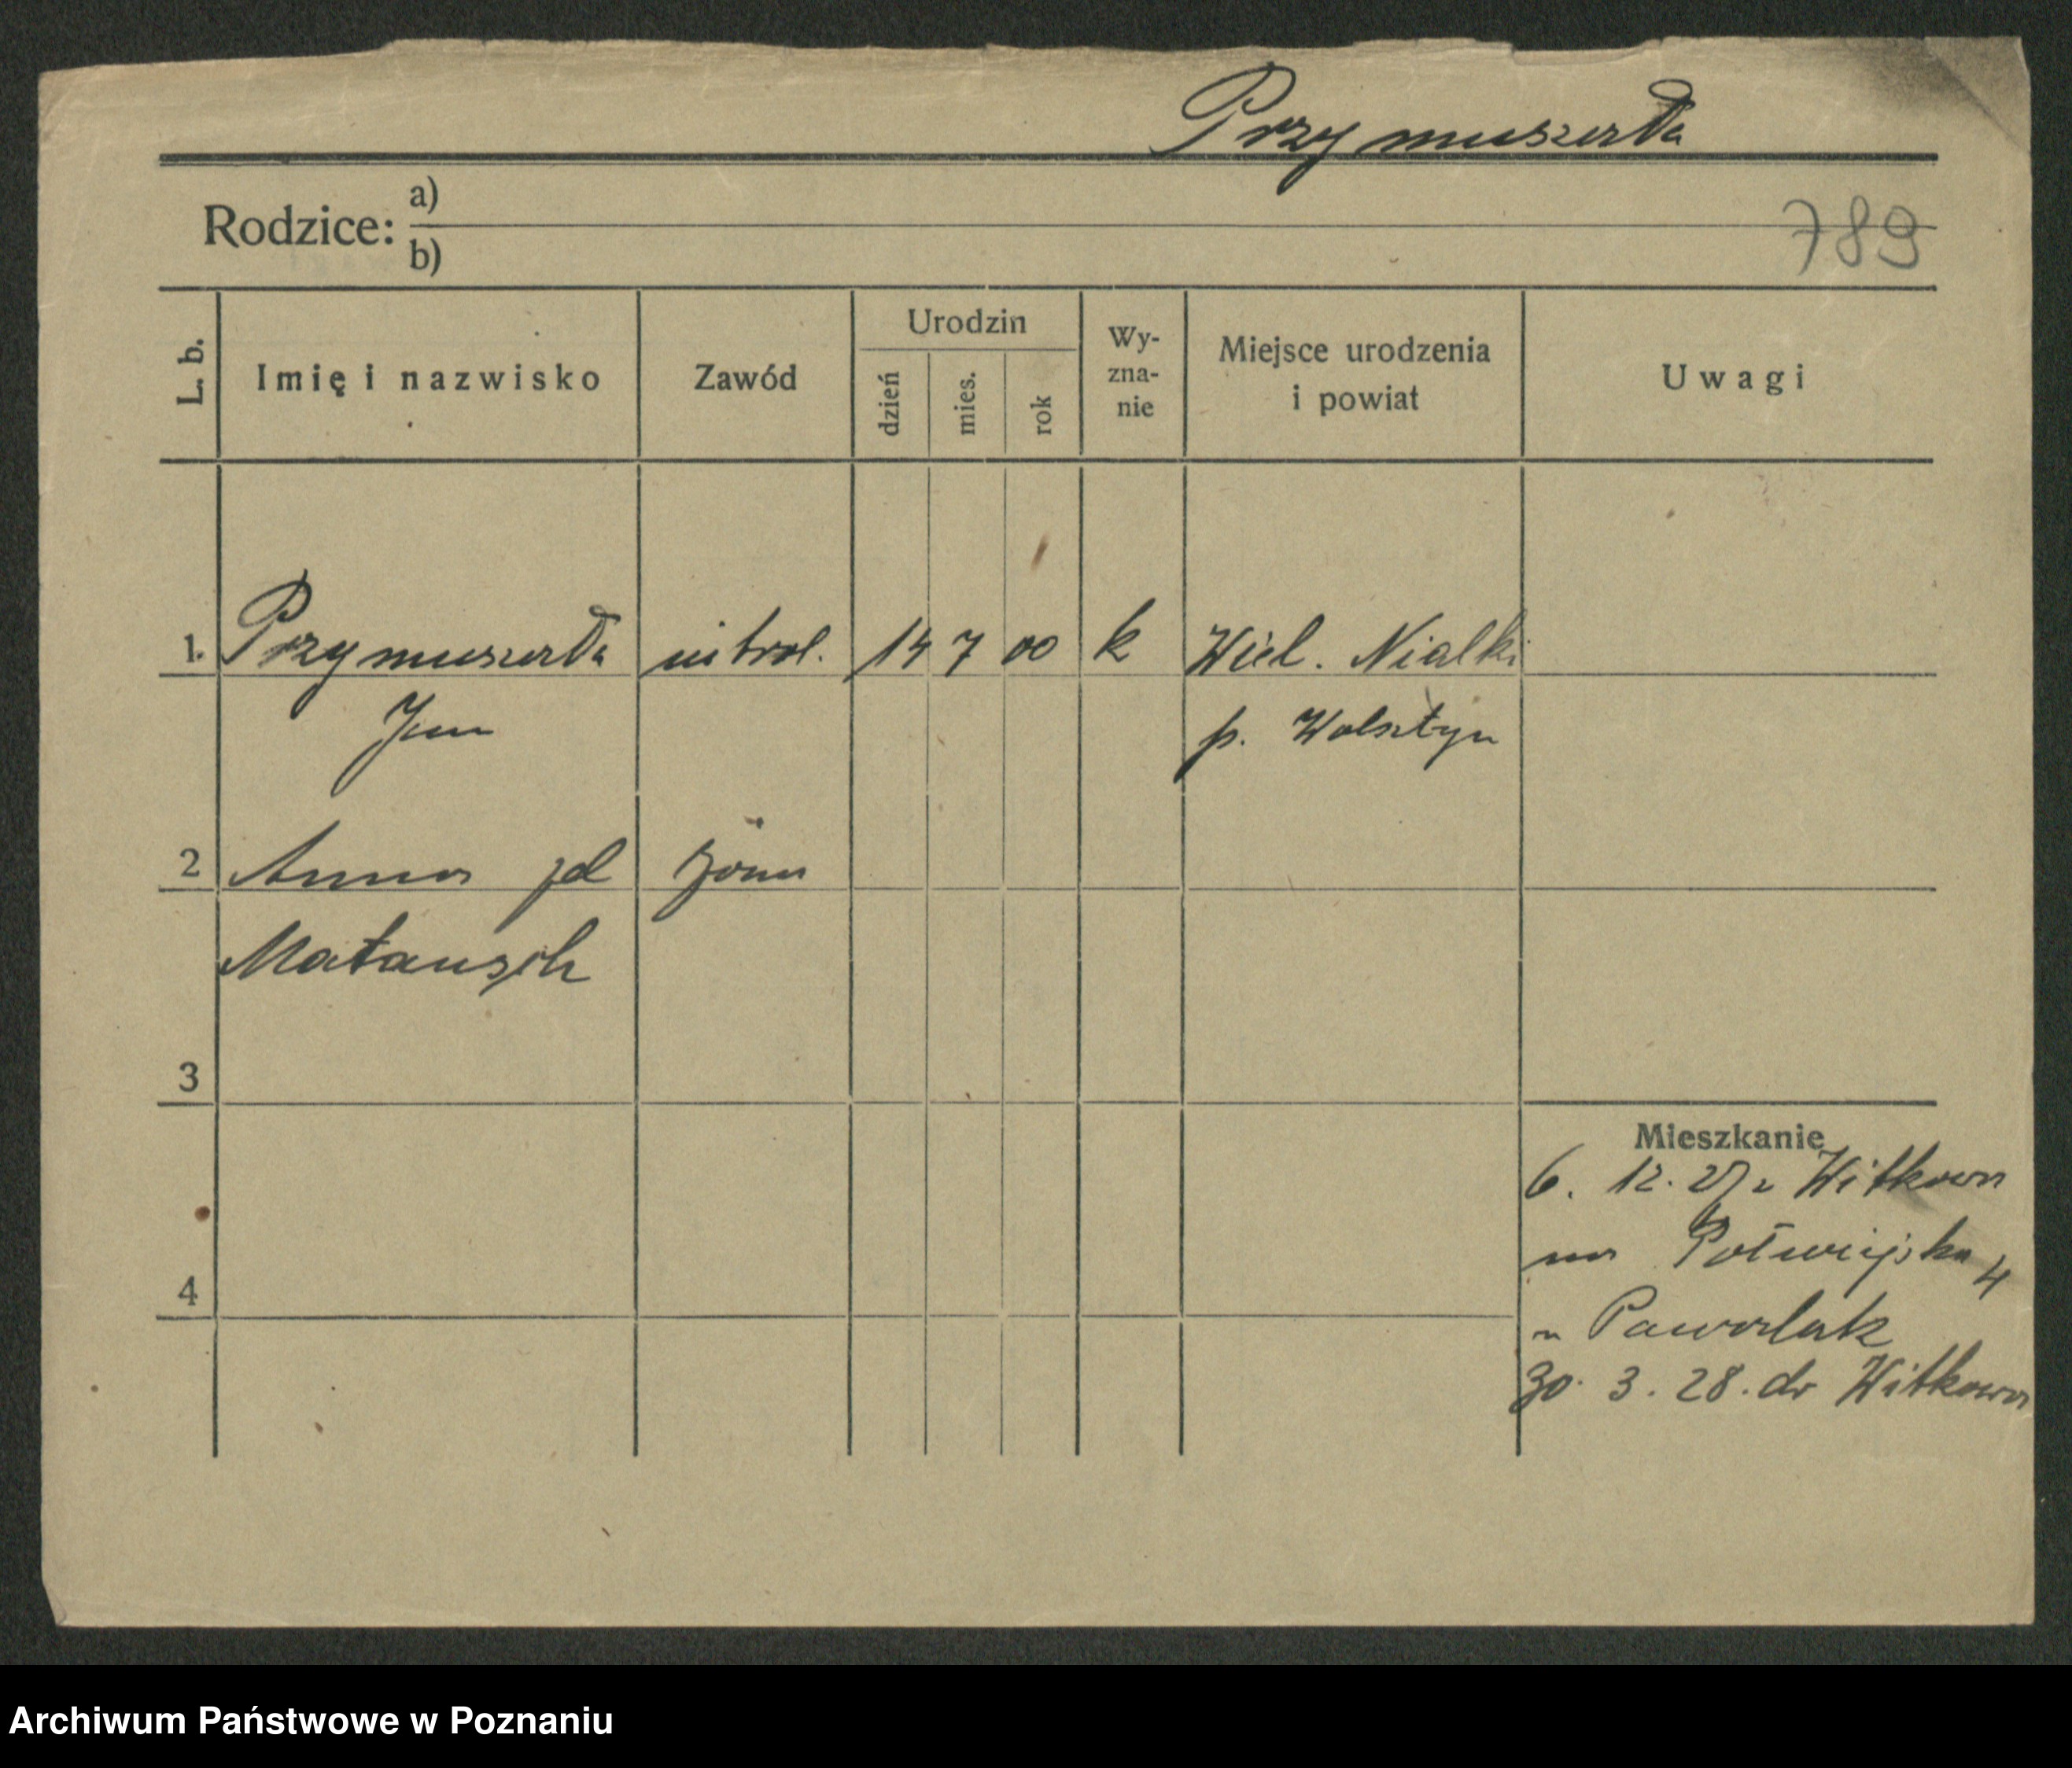 Przymuszała
Rodzice:
a)
b)
789
L. b.
Imię i nazwisko
Zawód
Urodzin
dzień
mies.
rok
Wy-
zna-
nie
Miejsce urodzenia
i powiat
Uwagi
1. Przymuszała 14 7 00 k Wiel. Nialki
Jan p. Wolsztyn
2 Anna żona
3
Mieszkanie
6. 12. 27 z Witkowa
na Półwiejska 4
4
u Pawolak
30. 3. 28. do Witkowa
Archiwum Państwowe w Poznaniu